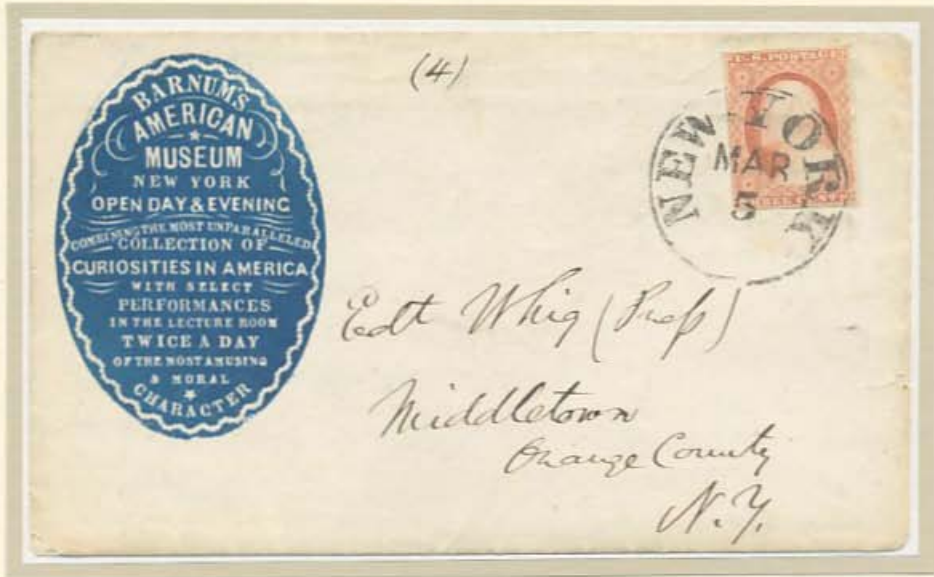 BARNUM'S
AMERICAN
MUSEUM
NEW YORK
OPEN DAY & EVENING
COMBINING THE MOST UNPARALLELED
COLLECTION OF
CURIOSITIES IN AMERICA
WITH SELECT
PERFORMANCES
IN THE LECTURE ROOM
TWICE A DAY
OF THE MOST AMUSING
& MORAL
CHARACTER
(4)
U.S. POSTAGE
NEW YORK
MAR
5
CENTS
Edt Whig (Press)
Middletown
Orange County
N.Y.